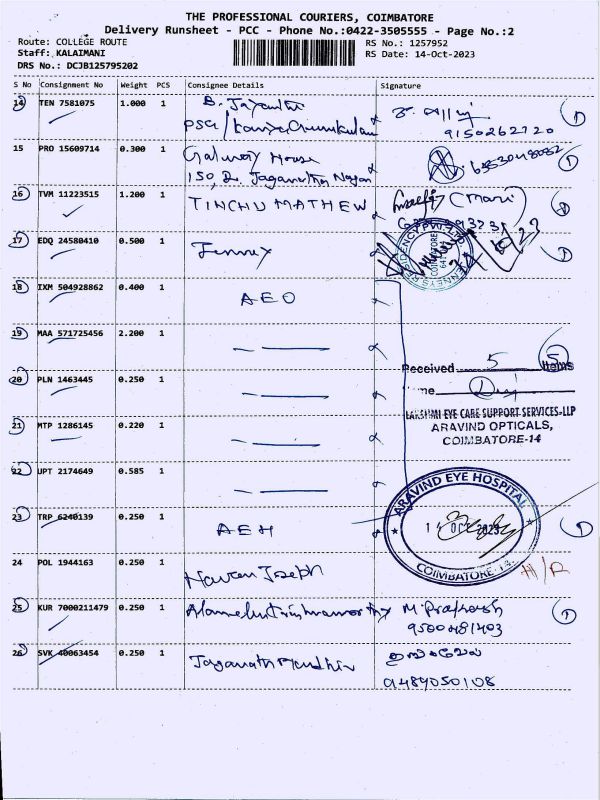 THE PROFESSIONAL COURIERS, COIMBATORE
Delivery Runsheet - PCC - Phone No.:0422-3505555 - Page No.:2
Route: COLLEGE ROUTE
RS No.: 1257952
Staff: KALAIMANI
RS Date: 14-Oct-2023
DRS No.: DCJB125795202
S No Consignment No Weight PCS Consignee Details Signature
14 TEN 7581075 1.000 1
PSG
9150262720
15 PRO 15609714 0.300 1 Galaxy House
150, D. Jaganathan Nagar
16 TVM 11223515 1.200 1 TINCHU MATHEW (Mari)
17 EDQ 24580410 0.500 1 Jenney
JENNEYS RESIDENCY
COIMBATORE
18 IXM 504928862 0.400 1 AEO
19 MAA 571725456 2.200 1 — —
Received 5 5 Items
20 PLN 1463445 0.250 1 — —
LAKSHMI EYE CARE SUPPORT SERVICES-LLP
21 MTP 1286145 0.220 1 — —
ARAVIND OPTICALS,
COIMBATORE-14
22 UPT 2174649 0.585 1 — —
ARAVIND EYE HOSPITAL
23 TRP 6240139 0.250 1 AEH
14 OCT 2023
COIMBATORE-14.
24 POL 1944163 0.250 1 Naveen Joseph H/R
25 KUR 7000211479 0.250 1 M. Prakash
9500481403
26 SVK 40063454 0.250 1
9489050108